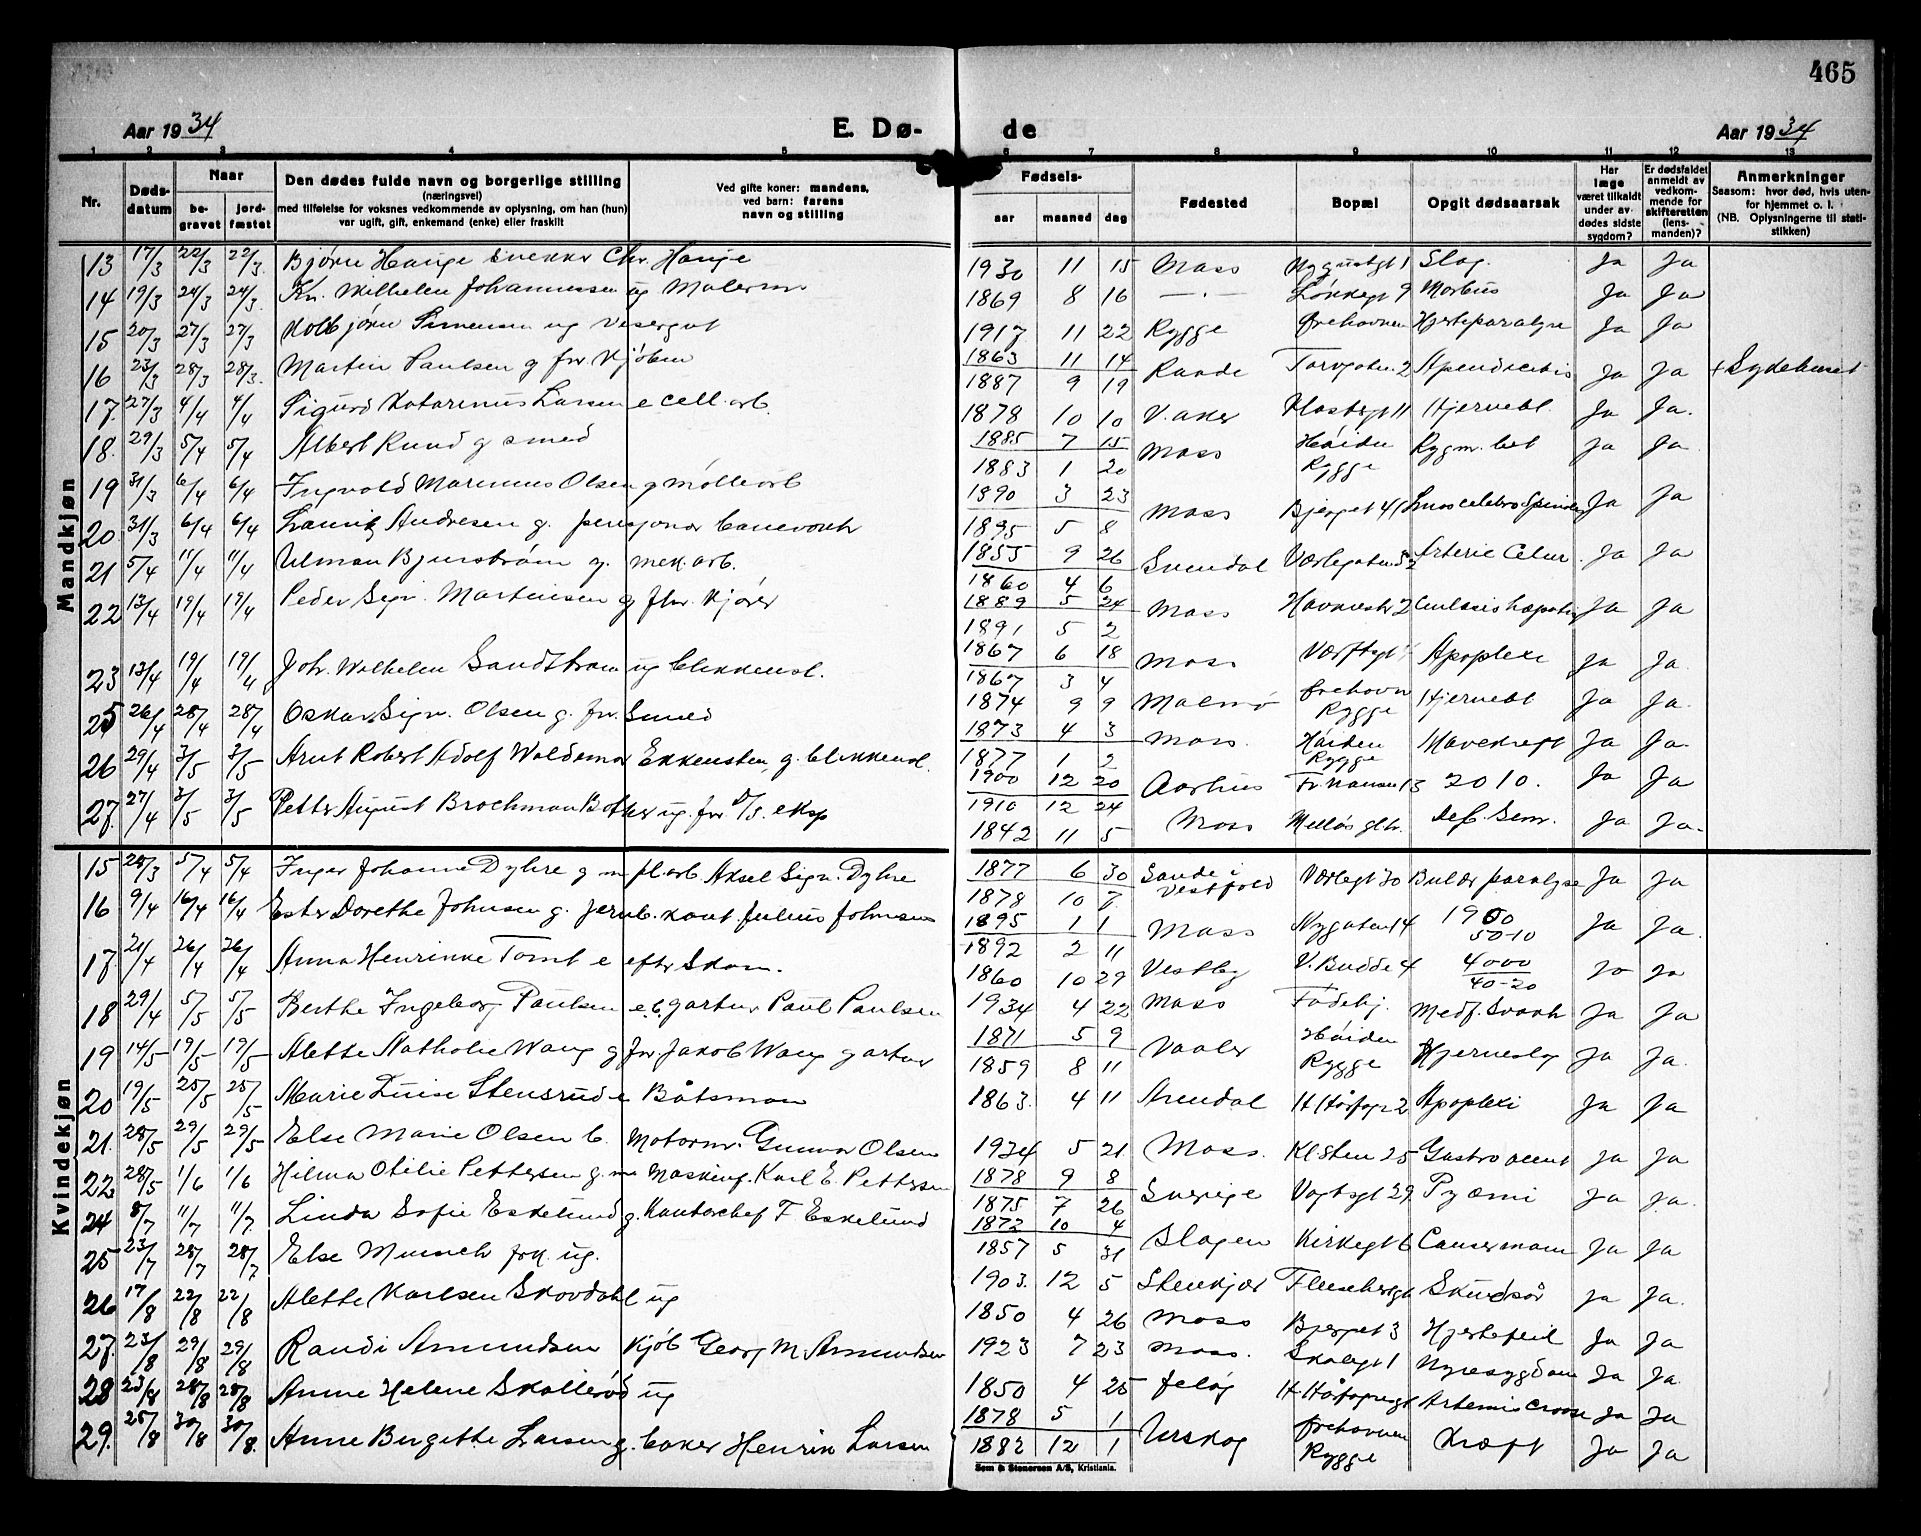 465
Aar 1934 E. Dø- de Aar 1934
1 2 3 4 5 6 7 8 9 10 11 12 13
Nr. Døds-datum Naar be-gravet jord-fæstet
Den dødes fulde navn og borgerlige stilling (næringsvei) med tilføielse for voksnes vedkommende av oplysning, om han (hun) var ugift, gift, enkemand (enke) eller fraskilt
Ved gifte koner: mandens, ved barn: farens navn og stilling
Fødsels- aar maaned dag
Fødested Bopæl Opgit dødsaarsak
Har læge været tilkaldt under av-dødes sidste sygdom?
Er dødsfaldet anmeldt av vedkom-mende for skifteretten (lens-manden)?
Anmerkninger Saasom: hvor død, hvis uten-for hjemmet o. l. (NB. Oplysningerne til stati-stikken)
Mandkjøn
13 17/3 22/3 22/3 Bjørn Hauge snekker Chr. Hauge 1930 11 15 Moss Slag. Ja Ja
14 19/3 24/3 24/3 Kr. Wilhelm Johannessen ug Malerm 1869 8 16 — Løkkegt 9 Morbus Ja Ja
15 20/3 27/3 27/3 Kolbjørn Simensen ug Visergut 1917 11 22 Rygge Ørehavnen Hjerteparalyse Ja Ja
16 23/3 28/3 28/3 Martin Paulsen g fhv Kjøbm 1863 11 14 1887 9 19 Raade Torvgaten 2 Apendicitis Ja Ja + Sykehuset
17. 27/3 4/4 4/4 Sigurd Katarinus Larsen e cell. arb. 1878 10 10 V. aker 11 Hjernebl. Ja Ja.
18. 29/3 5/4 5/4 Albert Rund g smed 1885 7 15 1883 1 20 Moss Høiden Rygge Rygm. bet Ja Ja
19 31/3 6/4 6/4 Ingvald Marinus Olsen g møllearb 1890 3 23 1895 5 8 Moss Ja Ja
20. 31/3 6/4 6/4 Andresen g. 1855 9 26 1860 4 6 Ja Ja
21 5/4 11/4 11/4 Ulman Bjurstrøm g. mek. arb. 1889 5 24 1891 5 2 Moss Ja Ja
22 13/4 19/4 19/4 Peder Sigv. Martinsen g fhv. kjører 1867 6 18 1867 3 4 Moss Apoplexi Ja Ja.
23 13/4 19/4 19/4 Joh. Wilhelm Sandstrøm ug blikkensl. 1874 9 9 1873 4 3 Malmø Ørehavn Rygge Hjernebl Ja Ja.
25 26/4 28/4 28/4 Oskar Sigv. Olsen g. fhv. Smed 1877 1 2 Moss. Høiden Rygge Mavekreft Ja Ja.
26 29/4 3/5 3/5 Arnt Robert Adolf Waldemar Ekkensten g. blikkensl. 1900 12 20 1910 12 24 Aarhus Fr. Nansen 13 2010. Ja Ja
27. 27/4 3/5 3/5 Petter August Brochman Bother ug. fhv D/S. eksp 1842 11 5 Moss Melløs Deb. Sem. Ja Ja.
Kvindekjøn
15 28/3 5/4 5/4 Inger Johanne Dyhre g m fl. arb Aksel Sigv. Dyhre 1877 6 30 1878 10 7. Sande i Vestfold Værlegt 30 Bulær paralyse Ja Ja
16 9/4 16/4 16/4 Ester Dorethe Johnsen g. jernb. kont. Julius Johnsen 1895 1 1 1892 2 11 Moss Nygaten 14 1950 50-10 Ja Ja.
17. 21/4 26/4 26/4 Anna Henrikke Tomt e efter Skom. 1860 10 29 Vestby V. Budde 4 4000 40-20 Ja Ja
18 29/4 5/5 5/5 Berthe Ingeborg Paulsen e. b. gartner Paul Paulsen 1934 4 22 Moss Fødehj. Medf. Svakh Ja Ja
19 14/5 19/5 19/5 Alette Nathalie Wang g fhv Jakob Wang gartner 1871 5 9 1859 8 11 Vaaler Høiden Rygge Hjerneslag Ja Ja.
20 19/5 25/5 25/5 Marie Luise Stensrud e Båtsman 1863. 4 11 Arendal 2 Apoplexi Ja Ja
21. 28/5 29/5 29/5 Else Marie Olsen b. Motormr. Gunnar Olsen 1934 5 21 Moss. Kl. Sten 25 Ja Ja
22 28/5 1/6 1/6 Hilma Otilie Pettersen g. m Maskinf. Karl E. Pettersen 1878 9 8 1875 7 26 Sverige Vogtsgt 29. Pyæmi Ja Ja.
24 8/7 11/7 11/7 Linda Sofie Eskelund g. Kontorchef F Eskelund 1872 10 4 1857 5 31 Slagen Kirkegt 6 Cancer mam Ja Ja
25 23/7 28/7 28/7 Else Munch frk. ug. 1903. 12 5 Stenkjær Ja Ja.
26 17/8 22/8 22/8 Alette Karlsen Skovdahl ug 1850 4 26 Moss 3 Hjertefeil Ja Ja
27. 23/8 29/8 29/8 Randi Amundsen Kjøb Georg M. Amundsen 1923 7 23 Moss. Skolegt 1 Nyresygdom Ja Ja.
28 23/8 28/8 28/8 Anne Helene Skallerød ug 1850 4 25 Jeløy Ja Ja
29. 25/8 30/8 30/8. Anne Bergitte Larsen g. baker Henrik Larsen 1878 5 1 1882 12 1 Urskog Ørehavnen Rygge Kræft Ja Ja
Sem & Stenersen A/S, Kristiania.